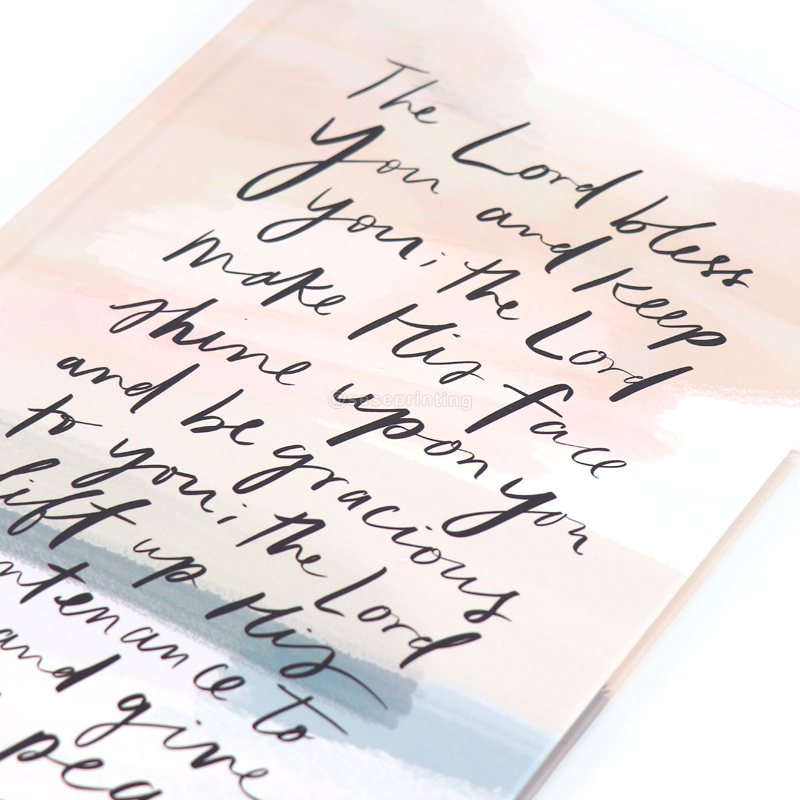 The Lord bless
you and keep
you; the Lord
make His face
shine upon you
and be gracious
to you; the Lord
lift up His
ntenance to
and give
pea
@seseprinting